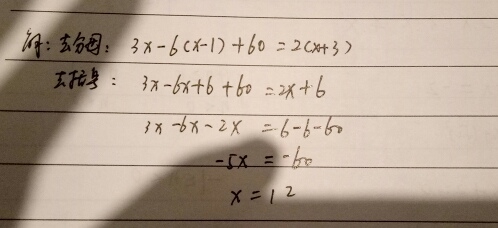 解：去分母：3x-6(x-1)+60=2(x+3)
去括号：3x-6x+6+60=2x+6
3x-6x-2x=6-6-60
-5x=-60
x=12